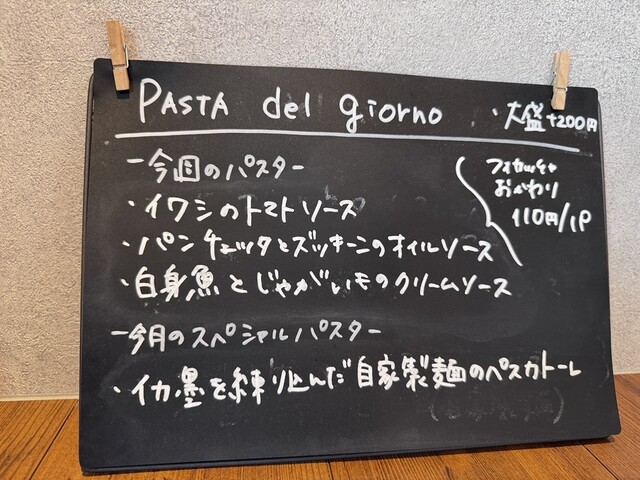 PASTA del giorno ・大盛+200円
ー今週のパスター
フォカッチャ
おかわり
110円/1P
・イワシのトマトソース
・パンチェッタとズッキーニのオイルソース
・白身魚とじゃがいものクリームソース
ー今月のスペシャルパスター
・イカ墨を練り込んだ自家製麺のペスカトーレ